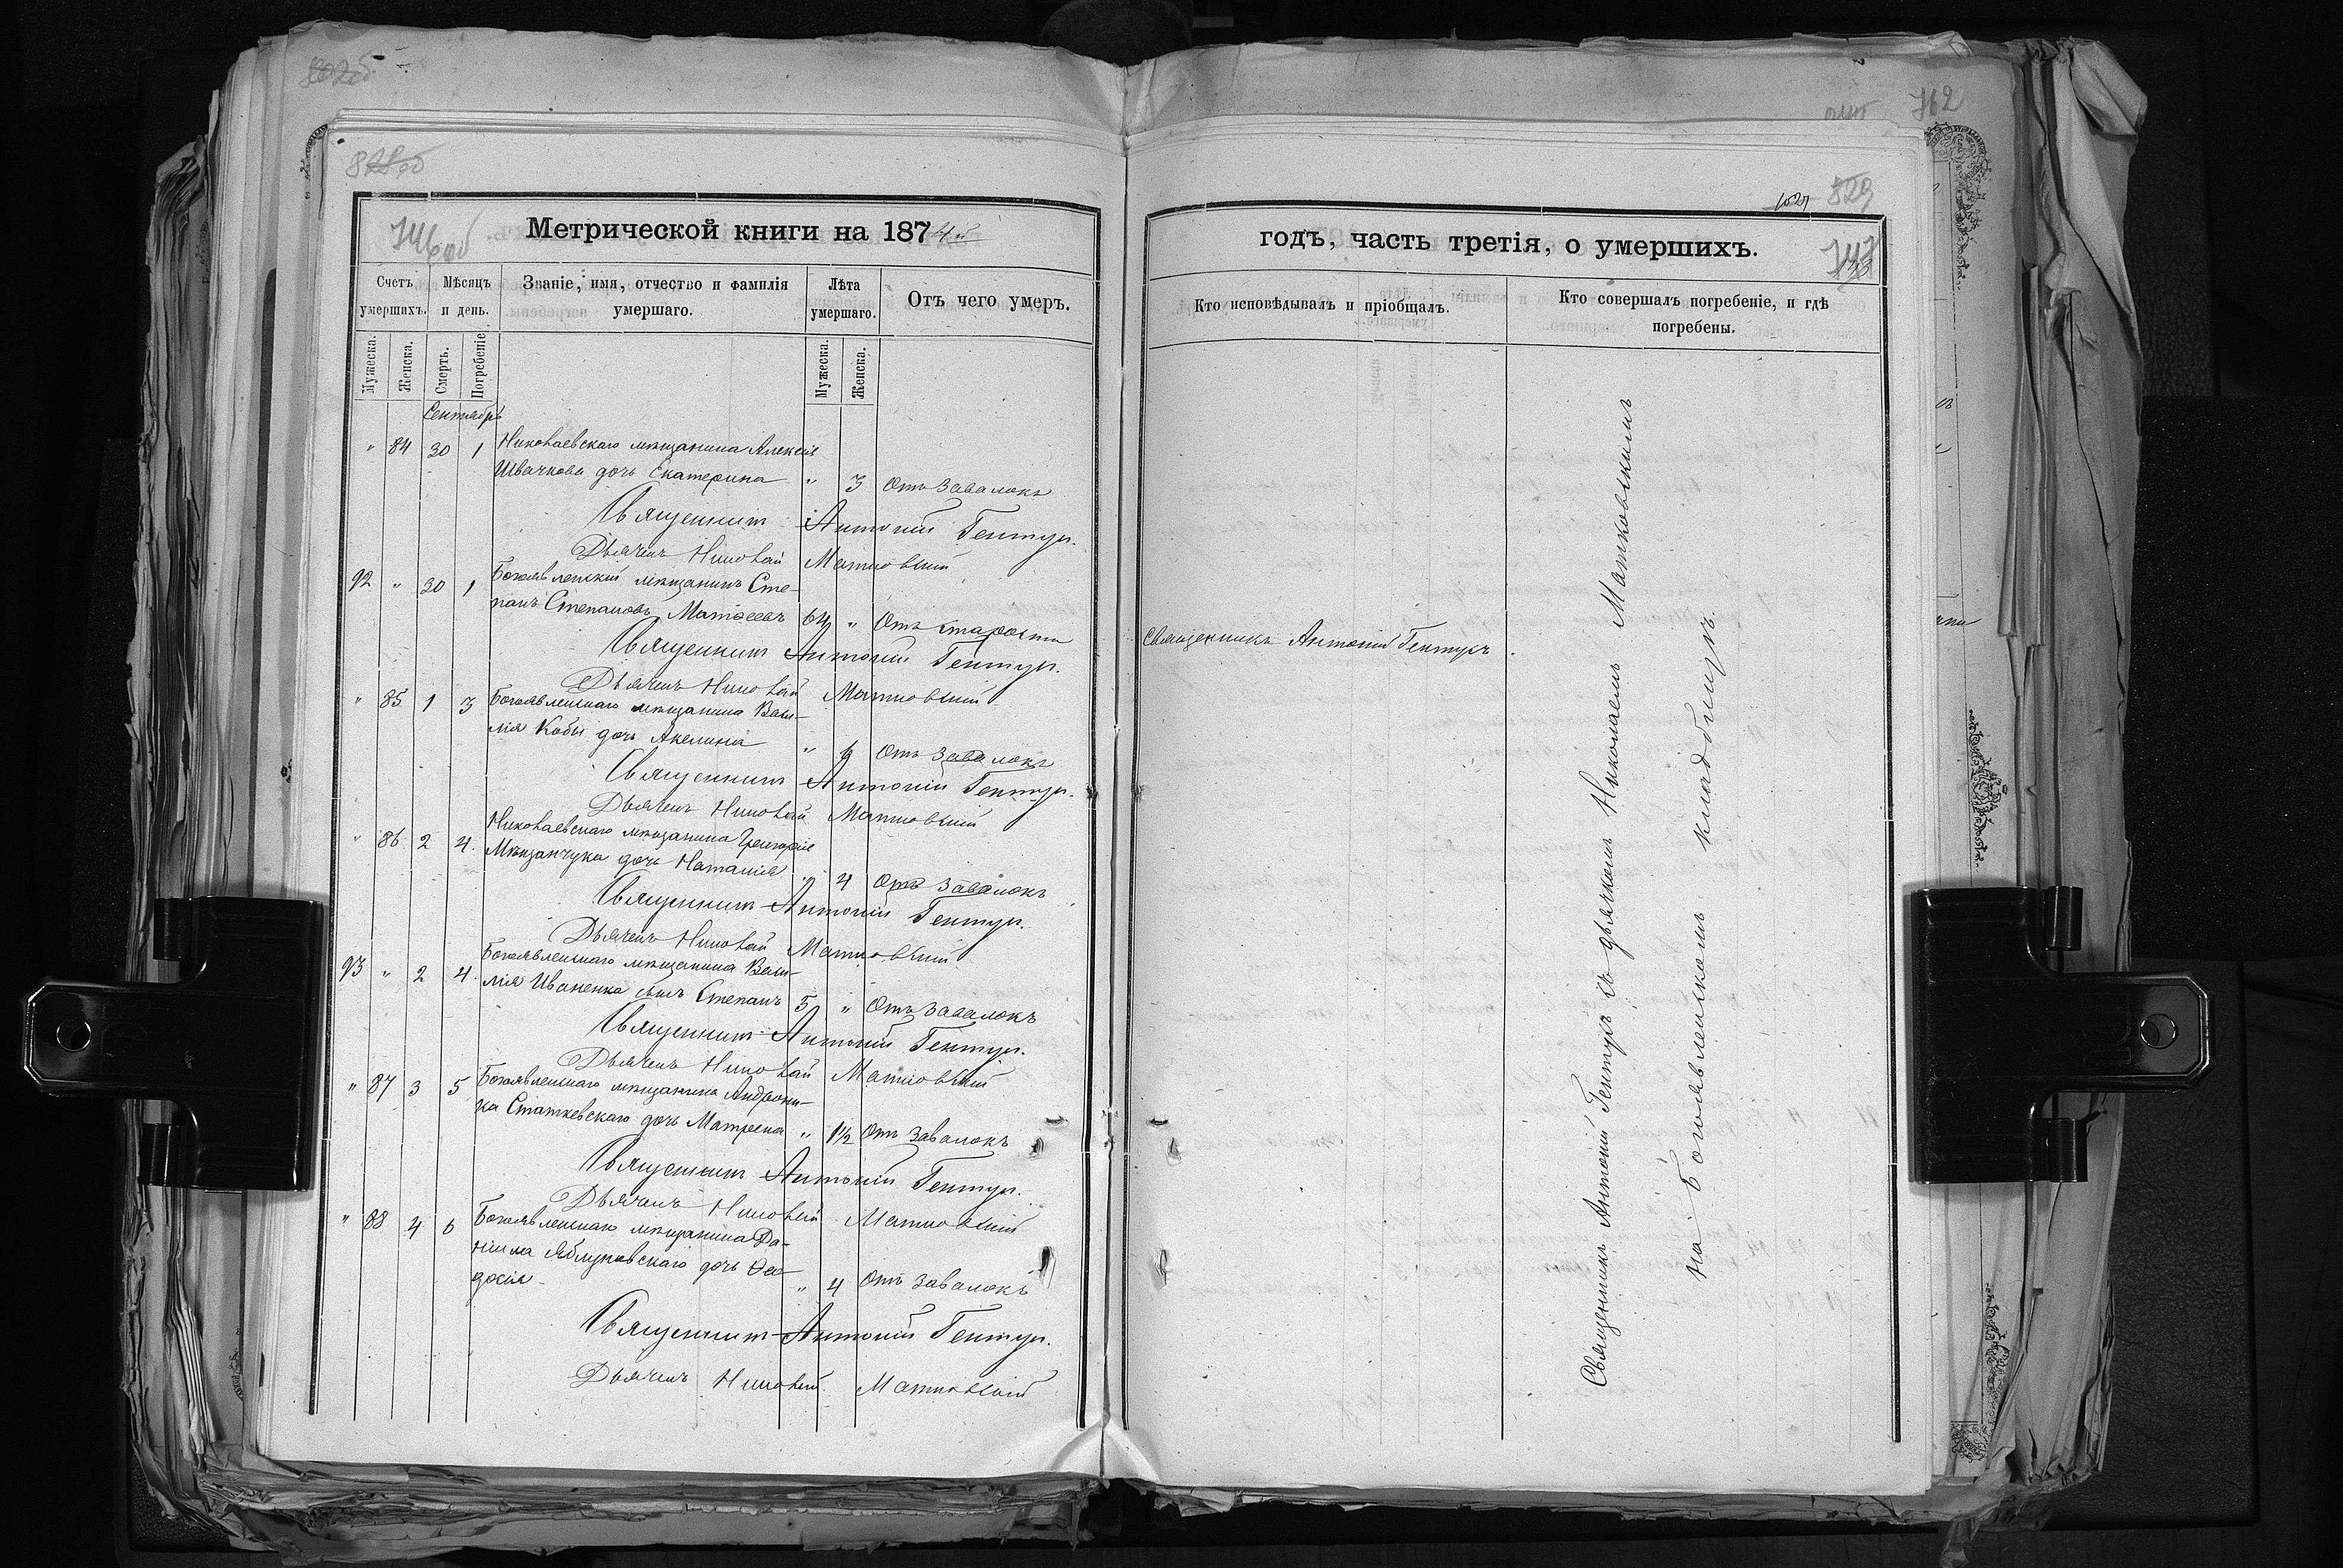 802об
828об
746об
Метрической книги на 1874й
Счетъ умершихъ.
Мѣсяцъ и день.
Званіе, имя, отчество и фамилія умершаго.
Лѣта умершаго.
Отъ чего умеръ.
Мужеска.
Женска.
Смерть.
Погребеніе
Мужеска.
Женска.
Сентябрь
" 84 30 1 Николаевскаго мѣщанина Алексія
Швачкова дочь Екатерина " 3 Отъ завалокъ
Священникъ Антоній Гентук.
Дьячекъ Николай Матковскій
92 " 30 1 Богоявленскій мѣщанинъ Сте-
панъ Степановъ Матѳеевъ 64 " Отъ старости
Священникъ Антоній Гентук.
Дьячекъ Николай Матковскій
" 85 1 3 Богоявленскаго мѣщанина Васи-
лія Кобы дочь Акелина " 6 Отъ завалокъ
Священникъ Антоній Гентук.
Дьячекъ Николай Матковскій
" 86 2 4 Николаевскаго мѣщанина Григорія
Мѣщанчука дочь Наталія " 4 Отъ завалокъ
Священникъ Антоній Гентук.
Дьячекъ Николай Матковскій
93 " 2 4 Богоявленскаго мѣщанина Васи-
лія Иваненка сынъ Степанъ 5 " Отъ завалокъ
Священникъ Антоній Гентук.
Дьячекъ Николай Матковскій
" 87 3 5 Богоявленскаго мѣщанина Андрони-
ка Статкевскаго дочь Матрена " 1½ Отъ завалокъ
Священникъ Антоній Гентук.
Дьячекъ Николай Матковскій
" 88 4 6 Богоявленскаго мѣщанина Да-
ніила Яблуновскаго дочь Ѳео-
досія " 4 Отъ завалокъ
Священникъ Антоній Гентук.
Дьячекъ Николай Матковскій
762
829
747
годъ, часть третія, о умершихъ.
Кто исповѣдывалъ и пріобщалъ.
Кто совершалъ погребеніе, и гдѣ погребены.
Священникъ Антоній Гентукъ
Священникъ Антоній Гентукъ съ дьячкомъ Николаемъ Матковскимъ
на Богоявленскомъ кладбищѣ.